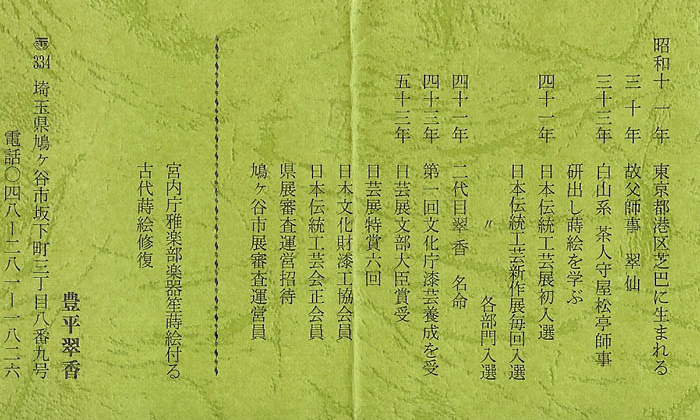 昭和十一年 東京都港区芝巴に生まれる
三十年 故父師事 翠仙
三十三年 白山系 茶人守屋松亭師事
研出し蒔絵を学ぶ
四十一年 日本伝統工芸展初入選
日本伝統工芸新作展毎回入選
〃 各部門入選
四十一年 二代目翠香 名命
四十三年 第一回文化庁漆芸養成を受
五十三年 日芸展文部大臣賞受
日芸展特賞六回
日本文化財漆工協会員
日本伝統工芸会正会員
県展審査運営招待
鳩ヶ谷市展審査運営員
宮内庁雅楽部楽器笙蒔絵付る
古代蒔絵修復
豊平翠香
〠334 埼玉県鳩ヶ谷市坂下町三丁目八番九号
電話〇四八ー二八一ー一八二六